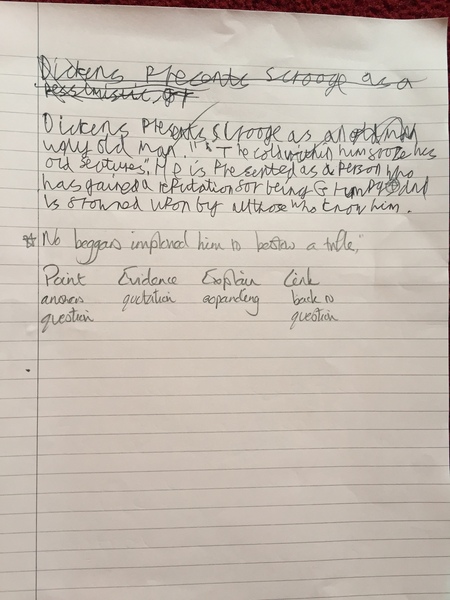 Dickens Presents Scrooge as a
Pessimistic, of
Dickens Presents Scrooge as an old man
ugly old man. "The cold within him sroze his
old seatures". He is Presented as a Person who
has gained a reputation sor being Grumpy and
is srowned upon by all those who know him.
☆ No beggars implored him to bestow a trifle,"
Point Evidence Explain Link
answers quotation expanding back to
question question